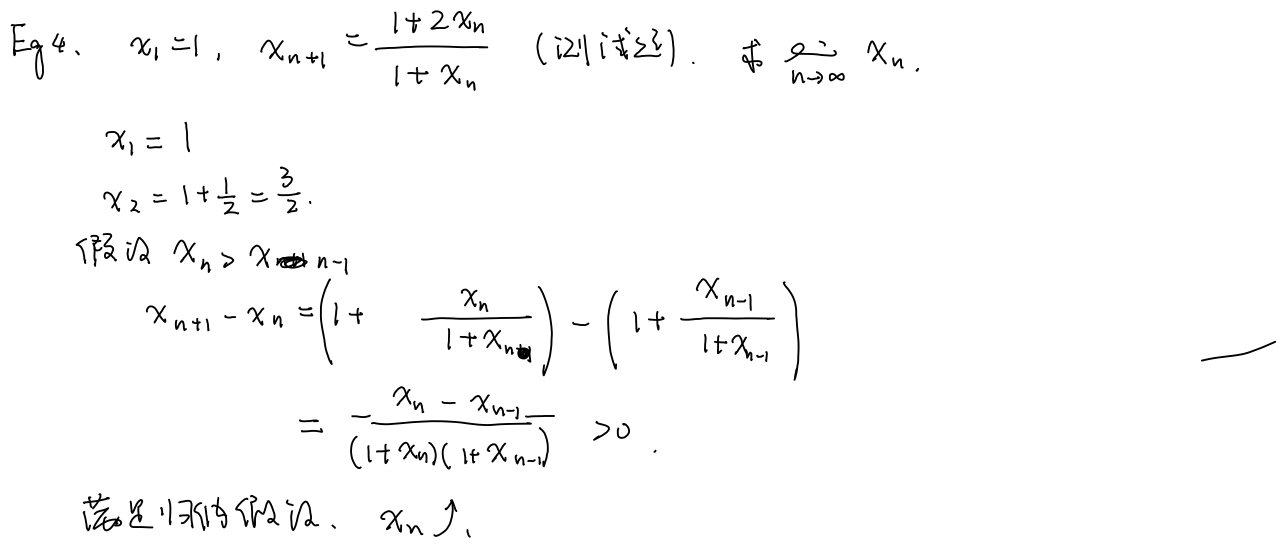 Eg 4. x₁ = 1, xₙ₊₁ = (1 + 2xₙ)/(1 + xₙ) . 求 lim n→∞ xₙ.
x₁ = 1
x₂ = 1 + 1/2 = 3/2.
假设 xₙ > xₙ₋₁
xₙ₊₁ - xₙ = (1 + xₙ/(1 + xₙ)) - (1 + xₙ₋₁/(1 + xₙ₋₁))
= (xₙ - xₙ₋₁)/((1 + xₙ)(1 + xₙ₋₁)) > 0.
满足归纳假设. xₙ ↑.